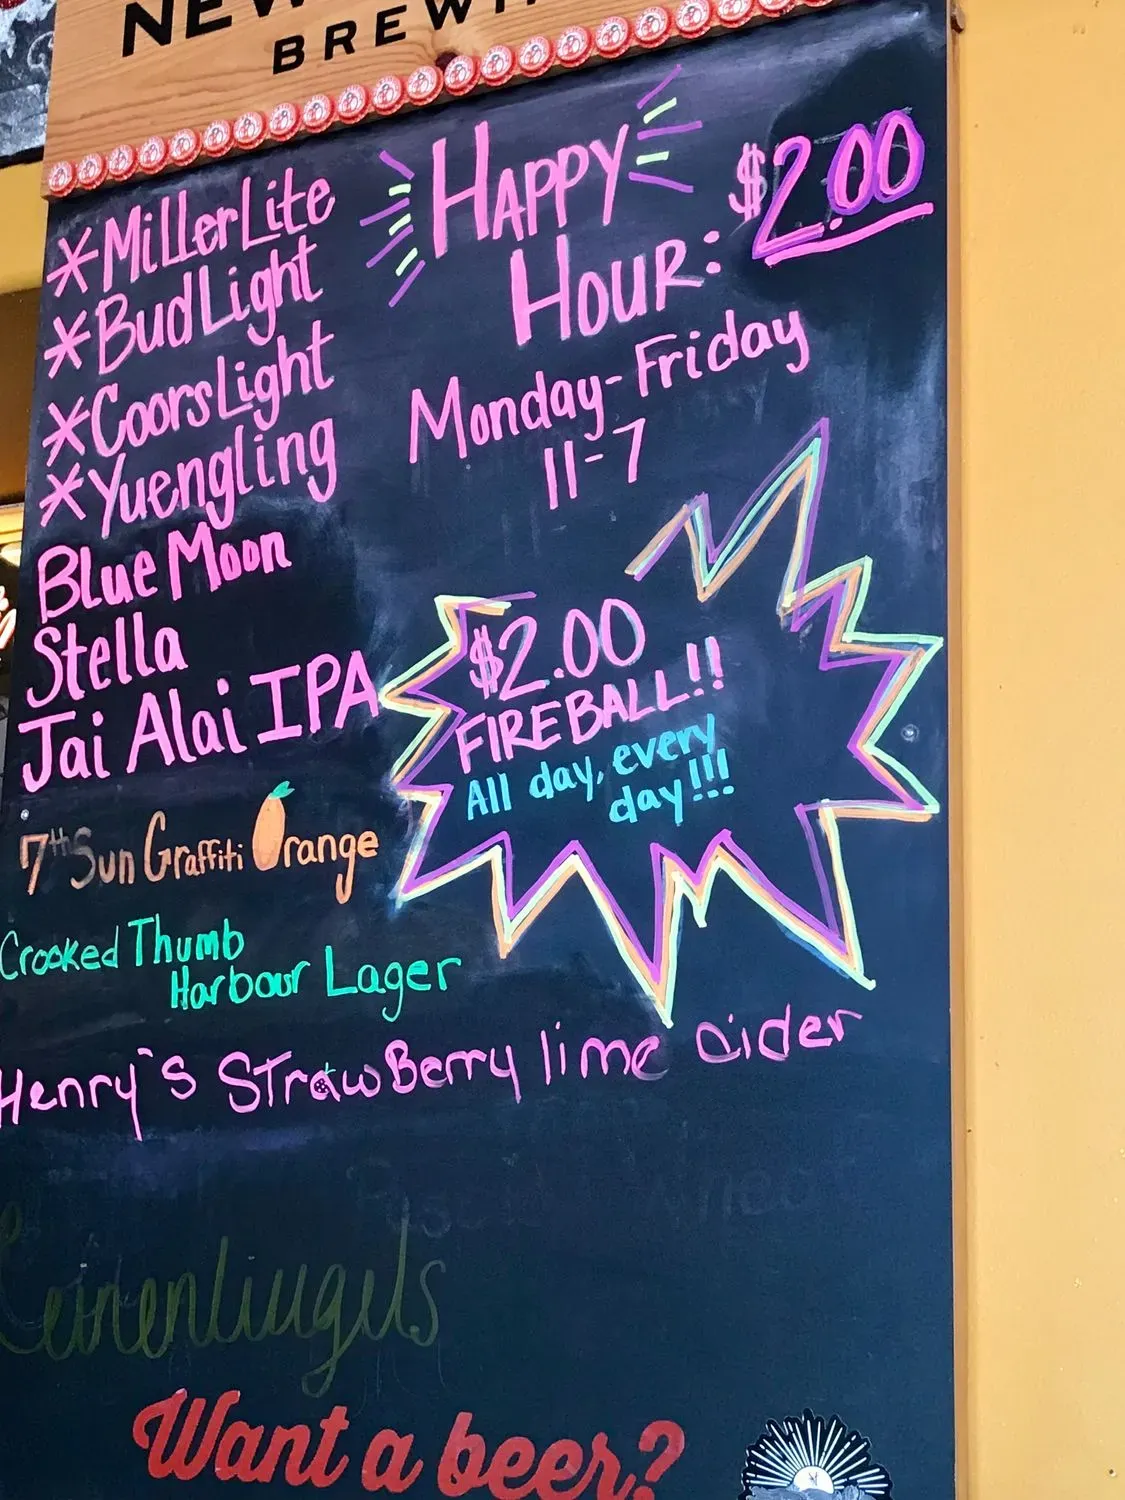 BREW
*Miller Lite
*Bud Light
*Coors Light
*Yuengling
Blue Moon
Stella
Jai Alai IPA
7th Sun Graffiti Orange
Crooked Thumb
Harbour Lager
Henry's StrawBerry lime cider
HAPPY
HOUR:
$2.00
Monday-Friday
11-7
$2.00
FIREBALL!!
All day, every
day!!!
Want a beer?